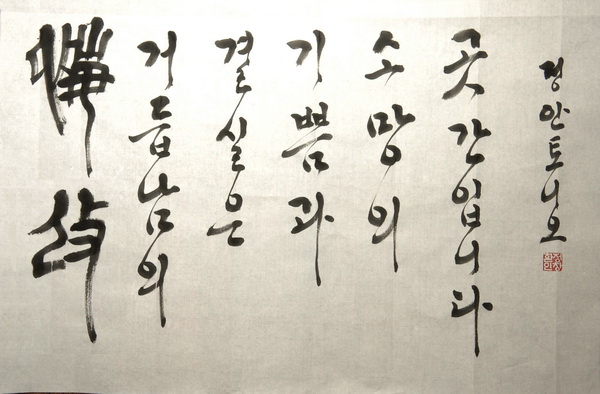 悔改
거듭남의
결실은
기쁨과
소망의
곳간입니다
정안토니오